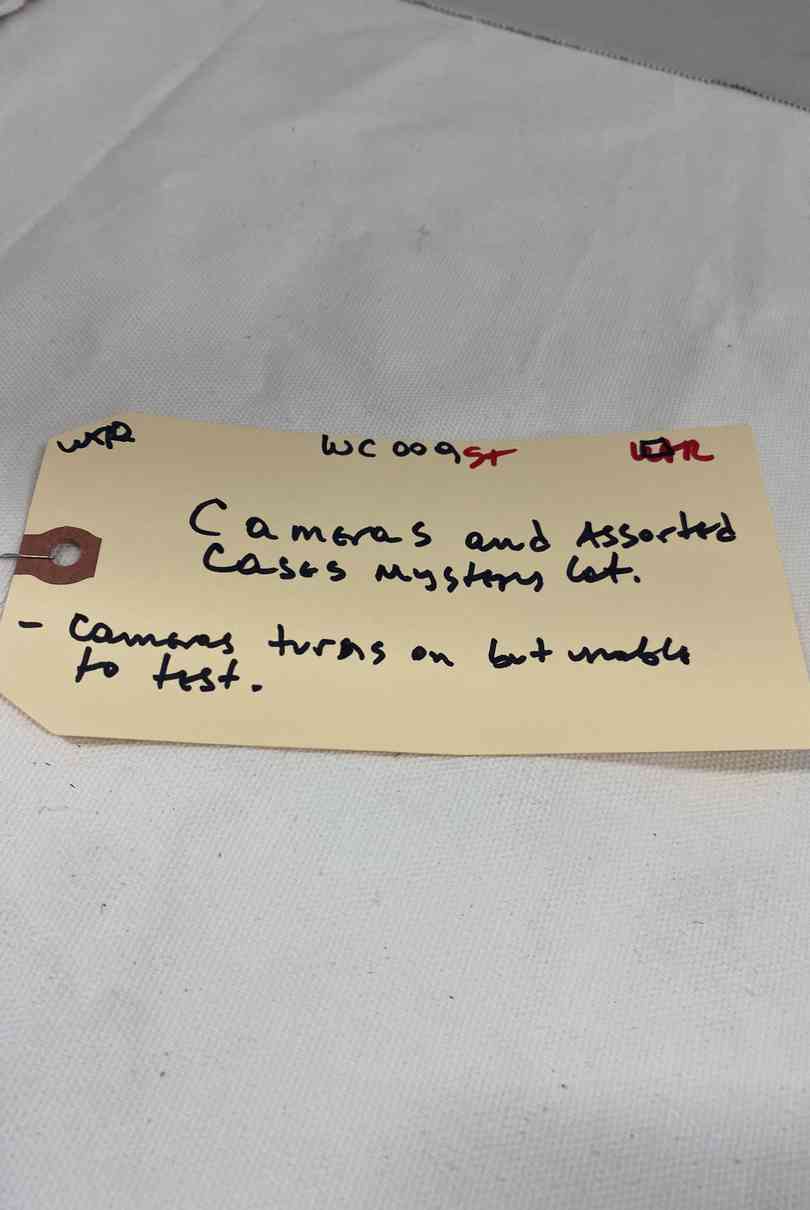 WC 009 ST
Cameras and Assorted
Cases Mystery Lot.
- Cameras turns on but unable
to test.